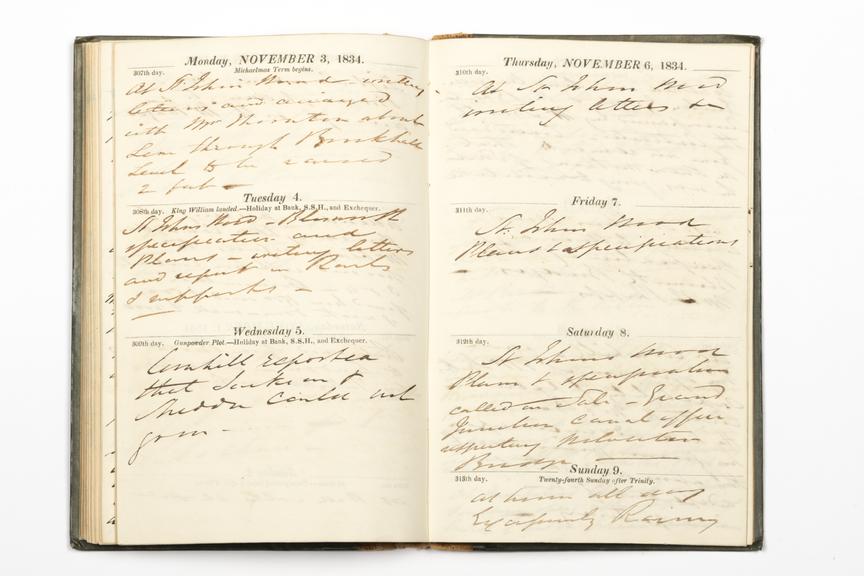 Monday, NOVEMBER 3, 1834.
307th day. Michaelmas Term begins.
At St. Johns Wood writing
letters and arranged
with Mr Thornton about
Line through
Level to be raised
2 feet
Tuesday 4.
308th day. King William landed.—Holiday at Bank, S.S.H., and Exchequer.
St Johns Wood –
specification and
Plans – writing letters
and report on Rails
& supports –
Wednesday 5.
309th day. Gunpowder Plot.—Holiday at Bank, S.S.H., and Exchequer.
reported
that
could not

Thursday, NOVEMBER 6, 1834.
310th day.
At St Johns Wood
writing letters &c
Friday 7.
311th day.
St. Johns Wood
Plans & specifications
Saturday 8.
312th day.
St Johns Wood
Plans & specification
called on – Grand
Junction canal office
respecting
Bridge
Sunday 9.
313th day. Twenty-fourth Sunday after Trinity.
at home all day